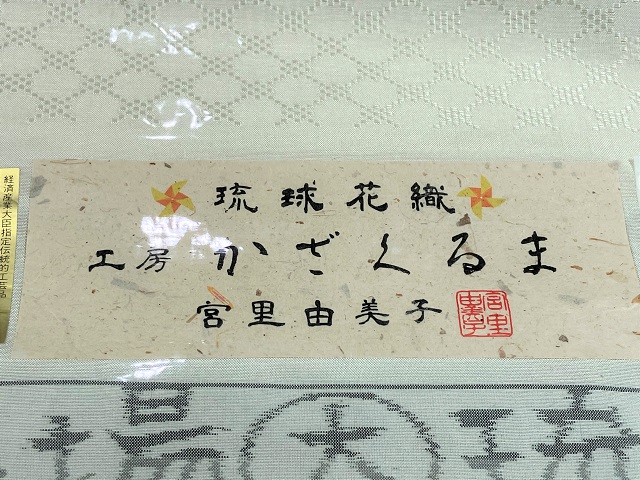 琉球花織
工房 かざぐるま
宮里由美子
経済産業大臣指定伝統的工芸品
場
大